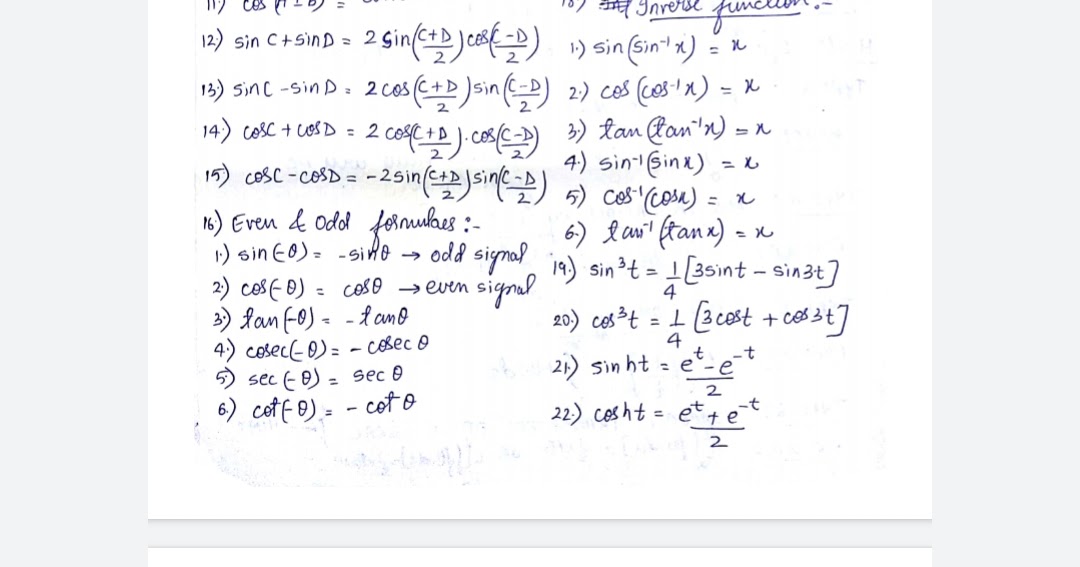 11.) cos (A ± B) =
12.) sin C + sin D = 2 sin(C+D/2) cos(C-D/2)
13.) sin C - sin D = 2 cos(C+D/2) sin(C-D/2)
14.) cos C + cos D = 2 cos(C+D/2) . cos(C-D/2)
15.) cos C - cos D = -2 sin(C+D/2) sin(C-D/2)
16.) Even & Odd formulaes :-
1.) sin(-θ) = -sinθ → odd signal
2.) cos(-θ) = cosθ → even signal
3.) tan(-θ) = -tanθ
4.) cosec(-θ) = -cosec θ
5.) sec(-θ) = sec θ
6.) cot(-θ) = -cot θ
18.) Inverse function :-
1.) sin(sin⁻¹x) = x
2.) cos(cos⁻¹x) = x
3.) tan(tan⁻¹x) = x
4.) sin⁻¹(sinx) = x
5.) cos⁻¹(cosx) = x
6.) tan⁻¹(tanx) = x
19.) sin³t = 1/4 [3sint - sin3t]
20.) cos³t = 1/4 [3cost + cos3t]
21.) sinht = e^t - e^-t / 2
22.) cosht = e^t + e^-t / 2